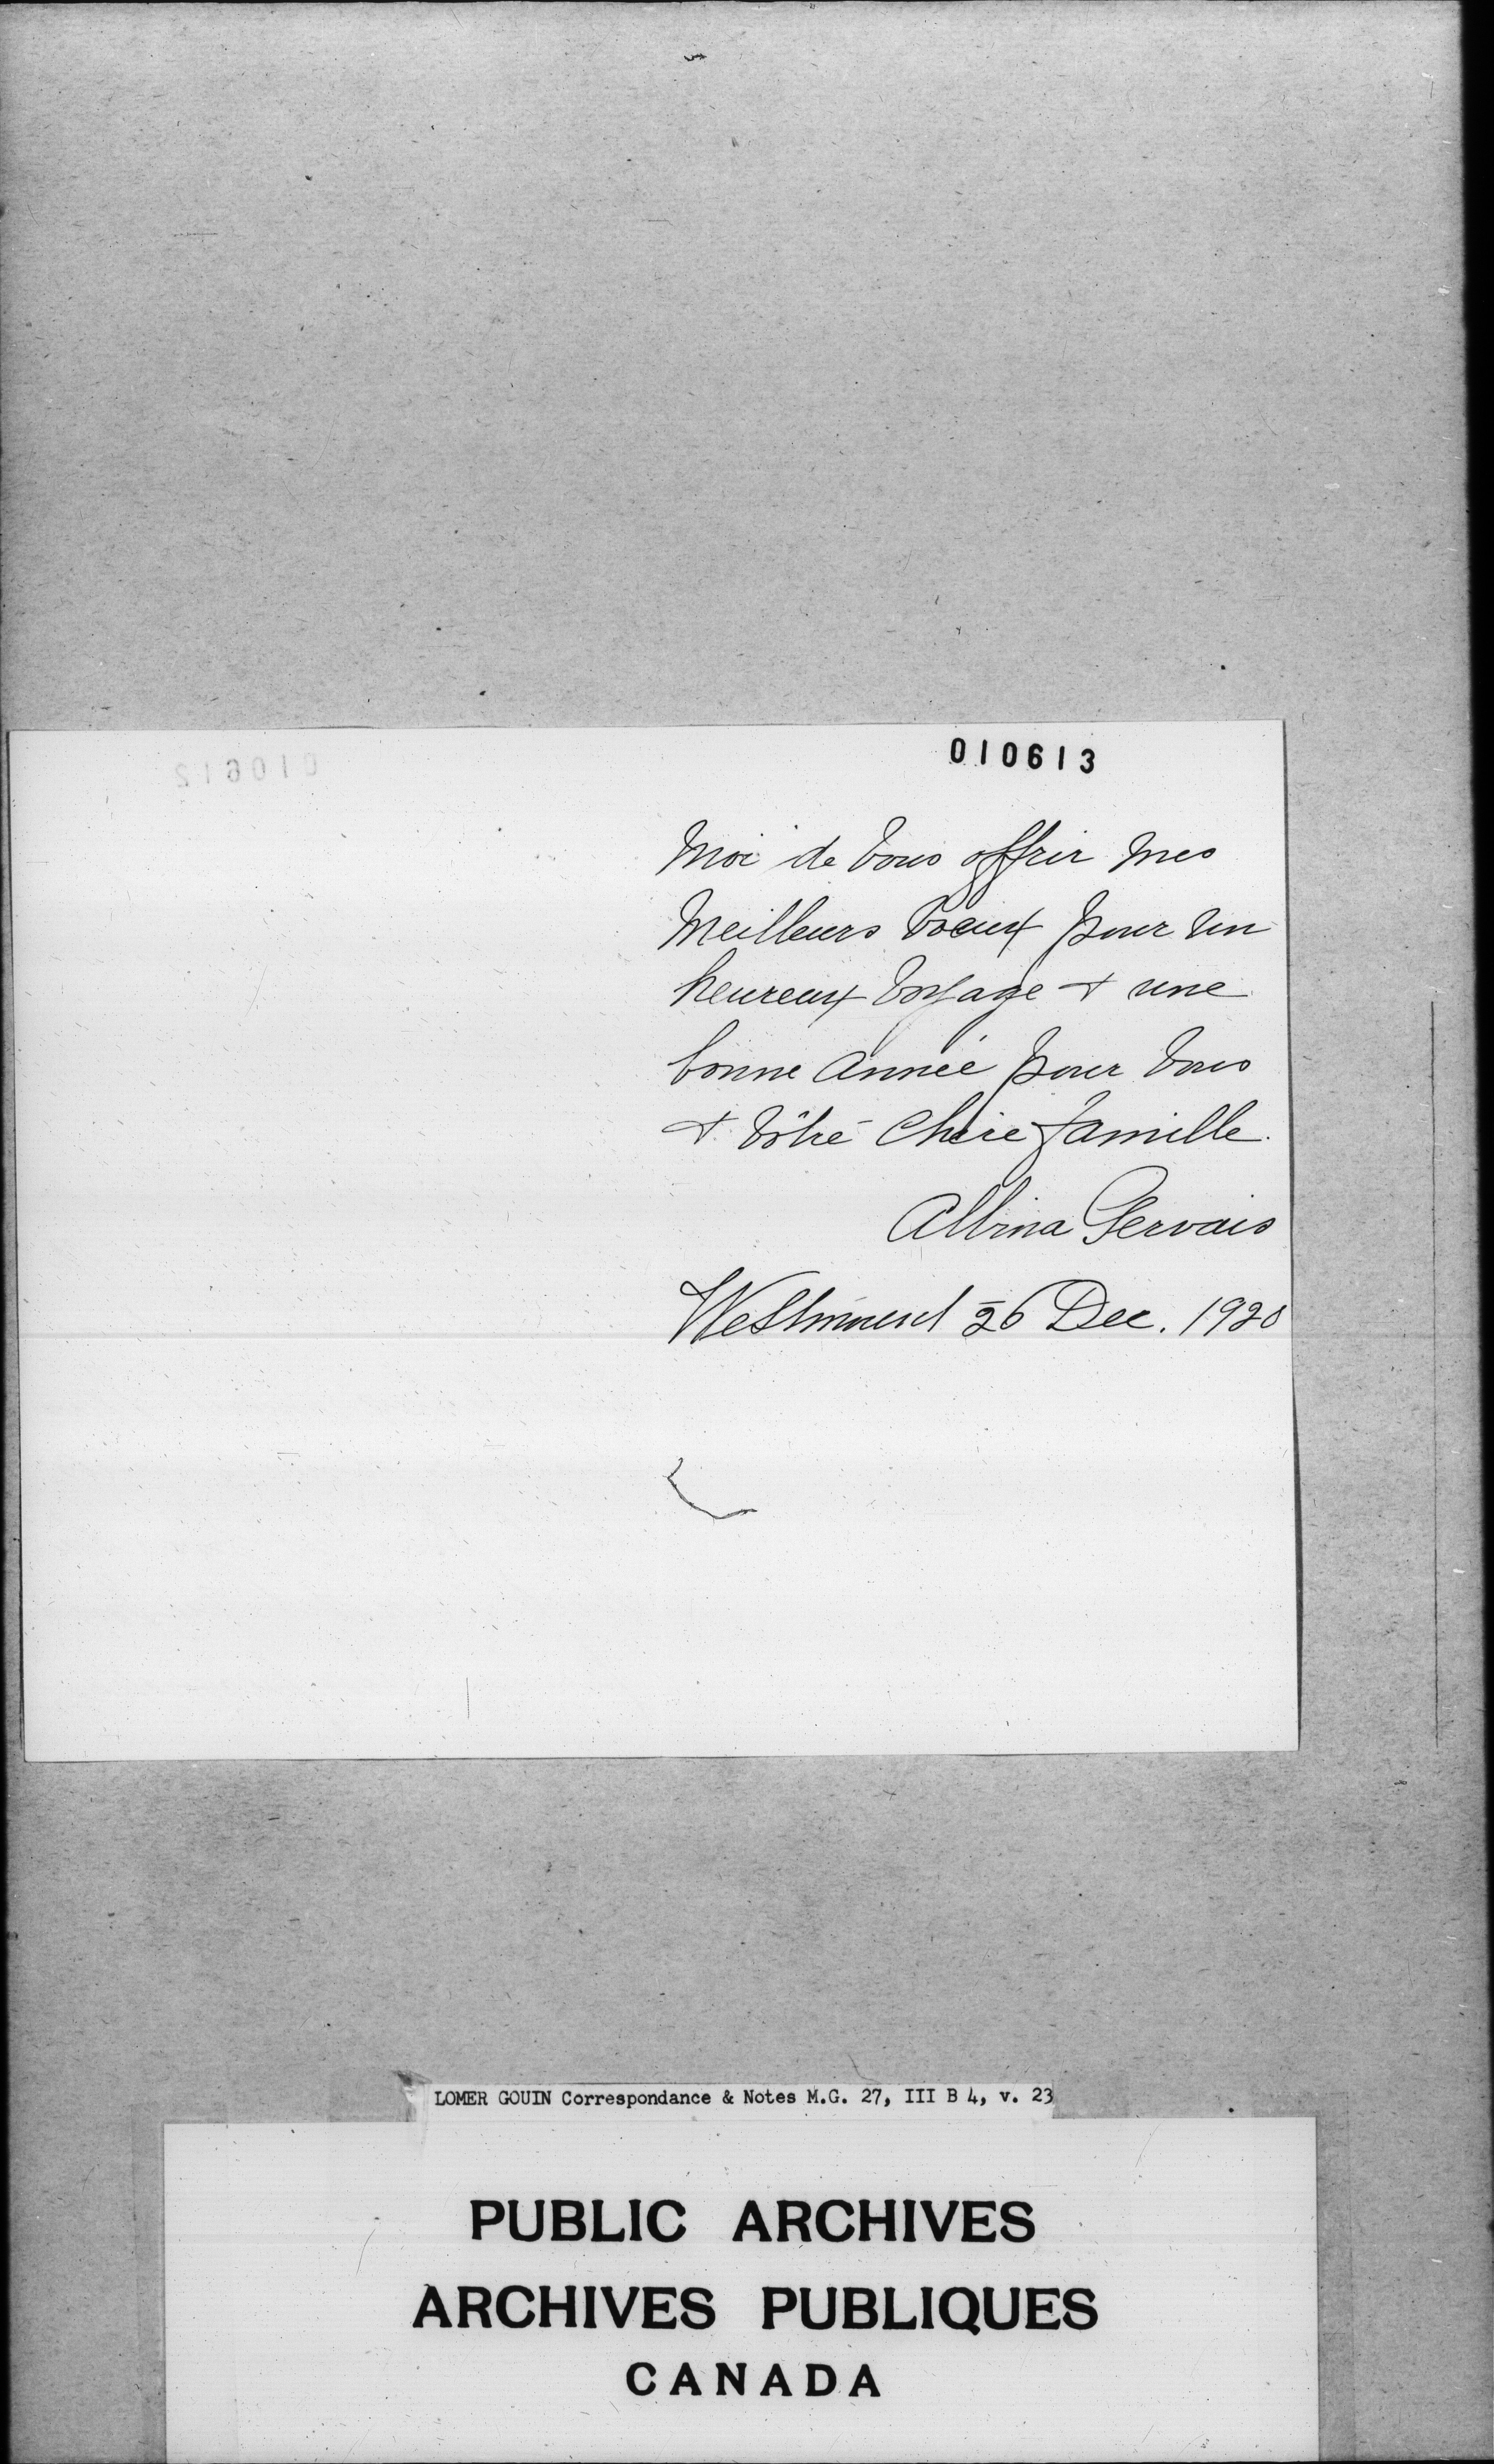 010613
Moi de vous offrir mes
Meilleurs Voeux pour un
heureux Voyage & une
bonne Année pour vous
& vôtre Chère famille.
Albina Gervais
Westmount 26 Dec. 1920
LOMER GOUIN Correspondance & Notes M.G. 27, III B 4, v. 23
PUBLIC ARCHIVES
ARCHIVES PUBLIQUES
CANADA